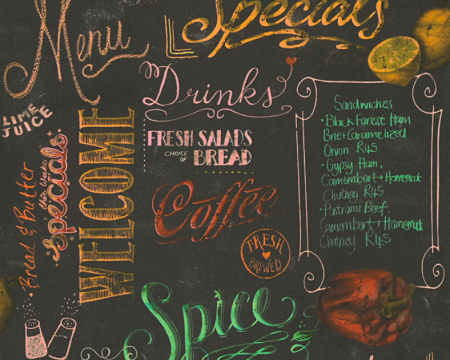 Menu
Specials
Drinks
LIME
JUICE
WELCOME
Bread & Butter
specials
FRESH SALADS
CHOICE
OF
BREAD
Coffee
FRESH
BREWED
Spice
Sandwiches
• Black Forest Ham
Brie + Caramelized
Onion R45
• Gypsy Ham,
Camembart + Homemade
Chutney R45
• Patrami Beef,
Camembart + Homemade
Chutney R45